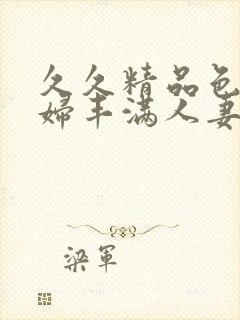 久久精品色
婦丰满人妻
梁軍